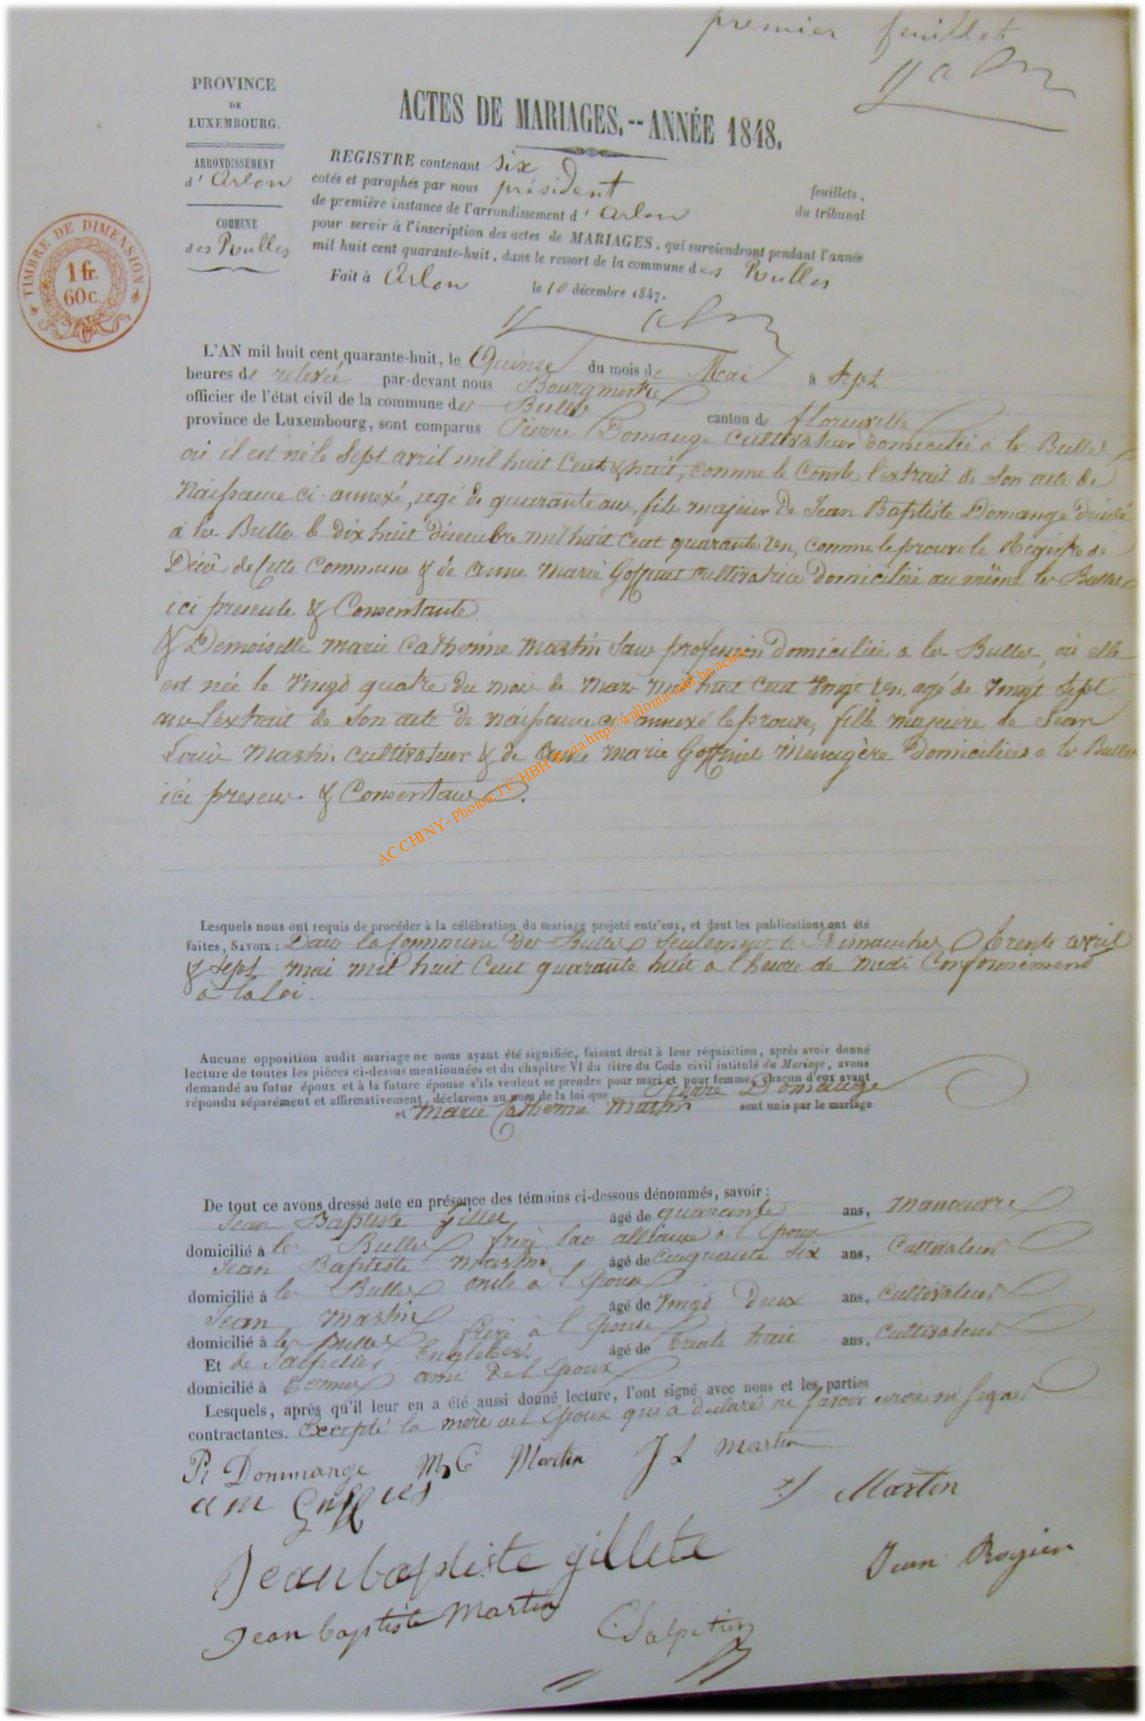 premier feuillet
PROVINCE
DE
LUXEMBOURG.
ARRONDISSEMENT
d'Arlon
COMMUNE
des Bulles
TIMBRE DE DIMENSION
1 fr.
60c.
ACTES DE MARIAGES.--ANNÉE 1848.
REGISTRE contenant six feuillets,
cotés et paraphés par nous président du tribunal
de première instance de l'arrondissement d'Arlon
pour servir à l'inscription des actes de MARIAGES, qui surviendront pendant l'année
mil huit cent quarante-huit, dans le ressort de la commune des Bulles
Fait à Arlon le 10 décembre 1847.
L'AN mil huit cent quarante-huit, le Quinze du mois de Mai à sept
heures de relevée par-devant nous Bourgmestre
officier de l'état civil de la commune des Bulles canton de florenville
province de Luxembourg, sont comparus Pierre Domange cultivateur domicilié à les Bulles
où il est né le Sept avril mil huit Cent & huit, comme le Conste l'extrait de Son acte de
Naissance ci-annexé, agé de quarante ans, fils majeur de Jean Baptiste Domange décédé
à les Bulles le dix huit décembre mil huit Cent quarante un, comme le prouve le Registre de
Décès de cette Commune & de anne marie Goffinet cultivatrice domiciliée au même les Bulles
ici presente & Consentante
& Demoiselle marie catherine Martin Sans profession domiciliée à les Bulles, où elle
est née le Vingt quatre du mois de Mars mil huit Cent Vingt un, agé de Vingt Sept
ans l'extrait de Son acte de naissance ci annexé le prouve, fille majeure de Jean
Louis Martin cultivateur & de Anne marie Goffinet Menagère Domiciliés à les Bulles
ici presens & Consentans.
AC CHINY - Photos J.C HBH Geria http://wallonia-asbl.be/actes
Lesquels nous ont requis de procéder à la célébration du mariage projeté entr'eux, et dont les publications ont été
faites, SAVOIR : Dans la Commune des Bulles Seulement les Dimanches trente avril
& Sept mai mil huit Cent quarante huit a l'heure de midi Conformement
à la Loi.
Aucune opposition audit mariage ne nous ayant été signifiée, faisant droit à leur réquisition, après avoir donné
lecture de toutes les pièces ci-dessus mentionnées et du chapitre VI du titre du Code civil intitulé du Mariage, avons
demandé au futur époux et à la future épouse s'ils veulent se prendre pour mari et pour femme, chacun d'eux ayant
répondu séparément et affirmativement, déclarons au nom de la loi que Pierre Domange
et Marie Catherine Martin sont unis par le mariage
De tout ce avons dressé acte en présence des témoins ci-dessous dénommés, savoir :
Jean Baptiste Gillet âgé de quarante ans, manoeuvre
domicilié à les Bulles frère par alliance à l'Epoux
Jean Baptiste Martin âgé de Cinquante Six ans, Cultivateur
domicilié à les Bulles oncle à l'Epouse
Jean Martin âgé de Vingt Deux ans, cultivateur
domicilié à les Bulles frère à l'Epouse
Et de Salpetier Englebert âgé de Trente huit ans, cultivateur
domicilié à ami de l'Epoux
Lesquels, après qu'il leur en a été aussi donné lecture, l'ont signé avec nous et les parties
contractantes. Excepté la mère de l'Epoux qui a declaré ne savoir ecrire ni signer
P. Dommange M C Martin J L Martin
a m Goffinet J Martin
Jean baptiste gillete Jean
Jean baptiste Martin Salpetier